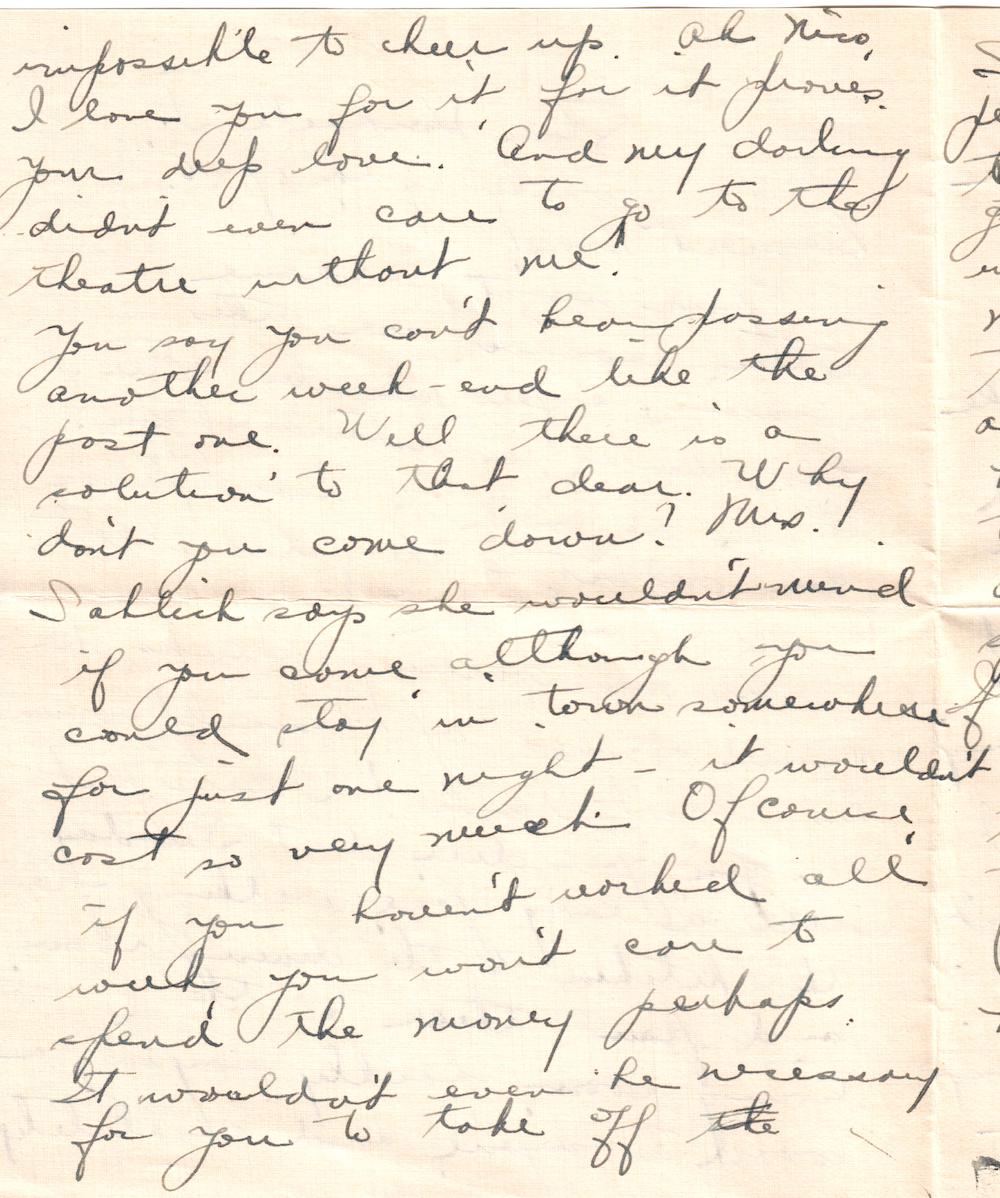 impossible to cheer up. Ah Nico,
I love you for it, for it proves
your deep love. And my darling
didn't even care to go to the
theatre without me!
You say you can't bear passing
another week-end like the
past one. Well there is a
solution to that dear. Why
don't you come down? Mrs.
Sahlich says she wouldn't mind
if you come although you
could stay in town somewhere
for just one night - it wouldn't
cost so very much. Of course,
if you haven't worked all
week, you won't care to
spend the money perhaps.
It wouldn't even be necessary
for you to take off the